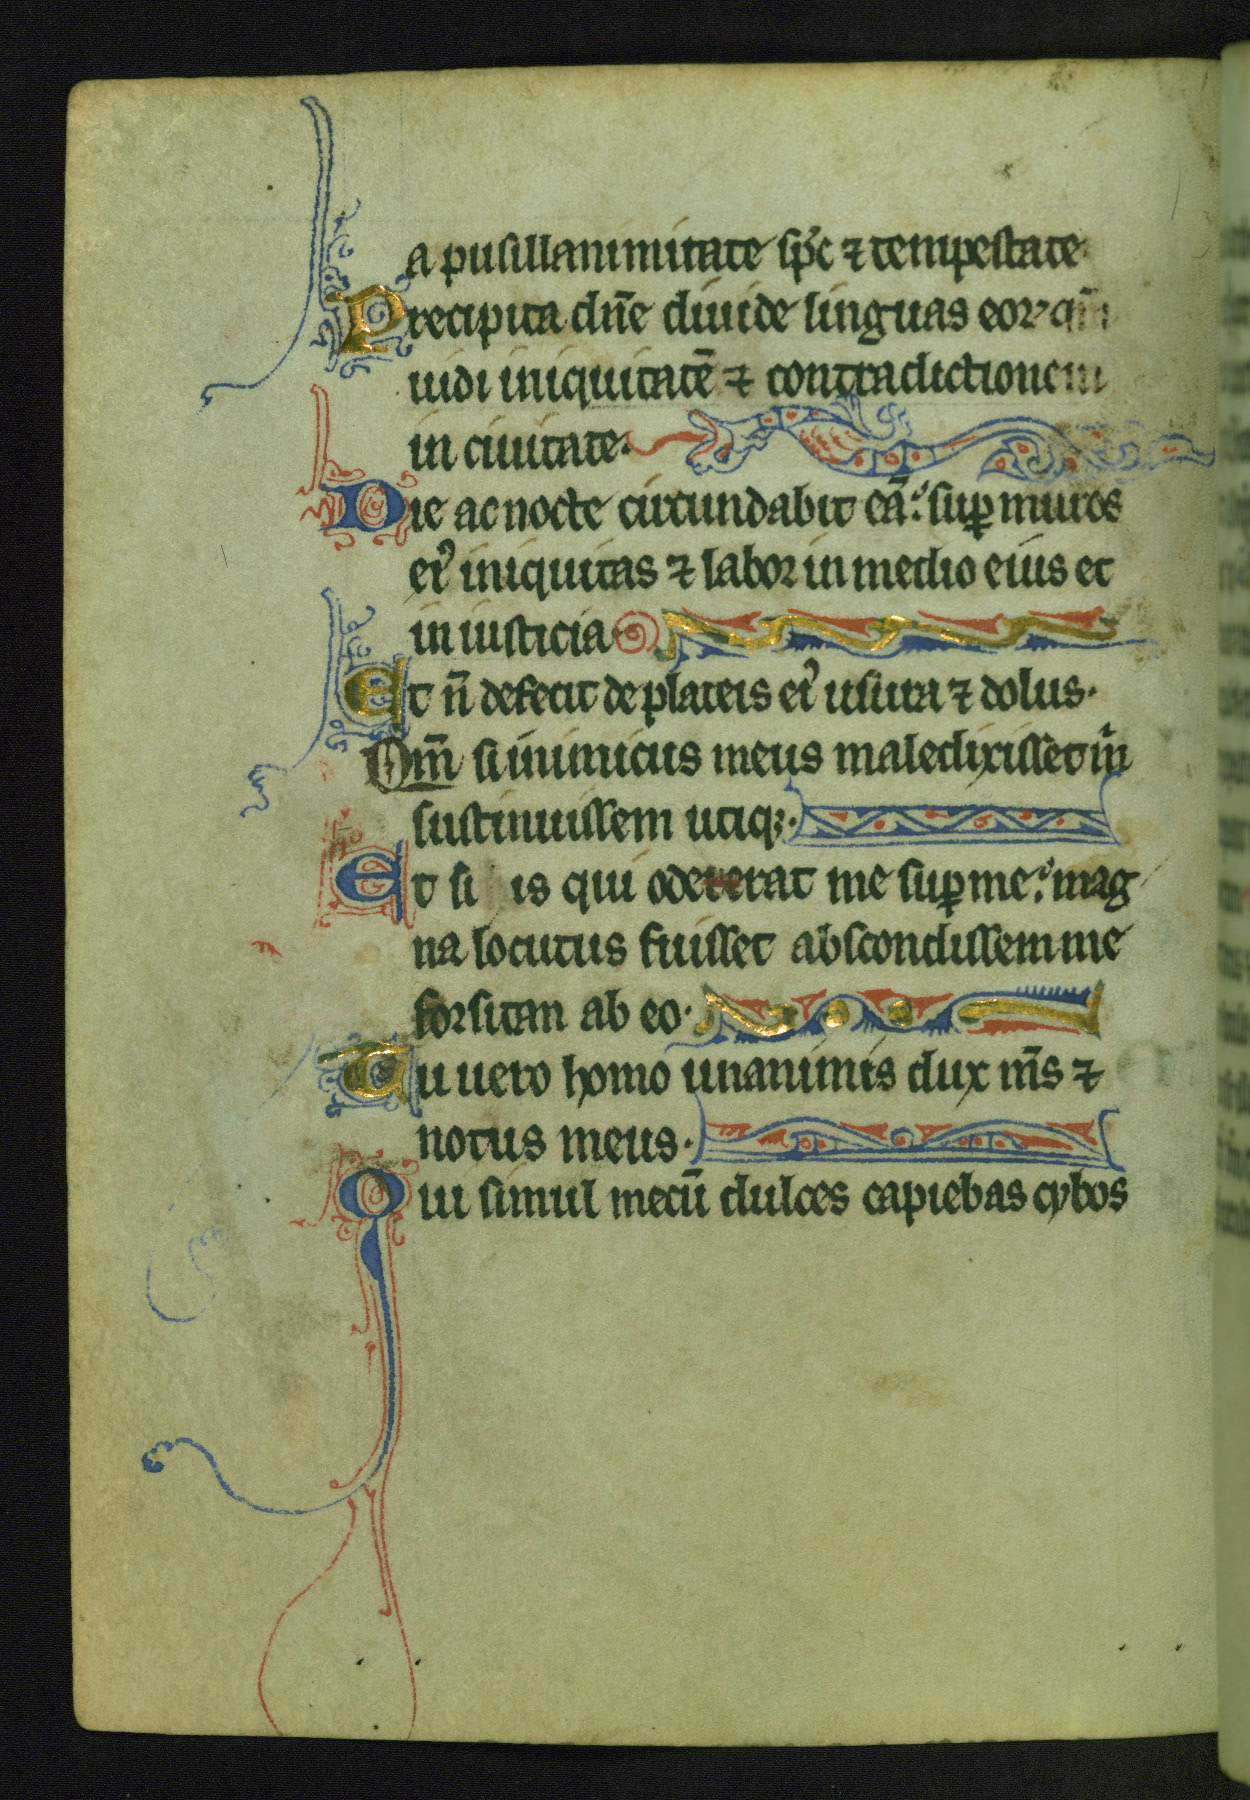 a pusillanimitate sp̄c ⁊ tempestate
Precipita dn̄e diuide linguas eoꝝ qm̄
uidi iniquitatē ⁊ contradictionem
in ciuitate.
Die ac nocte circundabit eā: suꝑ muros
eiꝰ iniquitas ⁊ labor in medio eius et
in iusticia
Et n̄ defecit de plateis eiꝰ usura ⁊ dolus.
Qm̄ si inimicus meus maledixisset m̄
sustinuissem utiqꝫ.
Et si is qui odererat me suꝑ me: mag
na locutus fuisset abscondissem me
forsitan ab eo.
Tu uero homo unanimis dux m̄s ⁊
notus meus.
Qui simul mecū dulces capiebas cybos